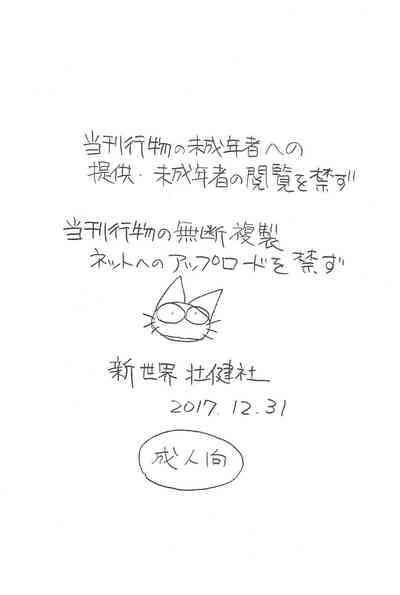 当刊行物の未成年者への
提供・未成年者の閲覧を禁ず
当刊行物の無断複製
ネットへのアップロードを禁ず
新世界壮健社
2017.12.31
成人向